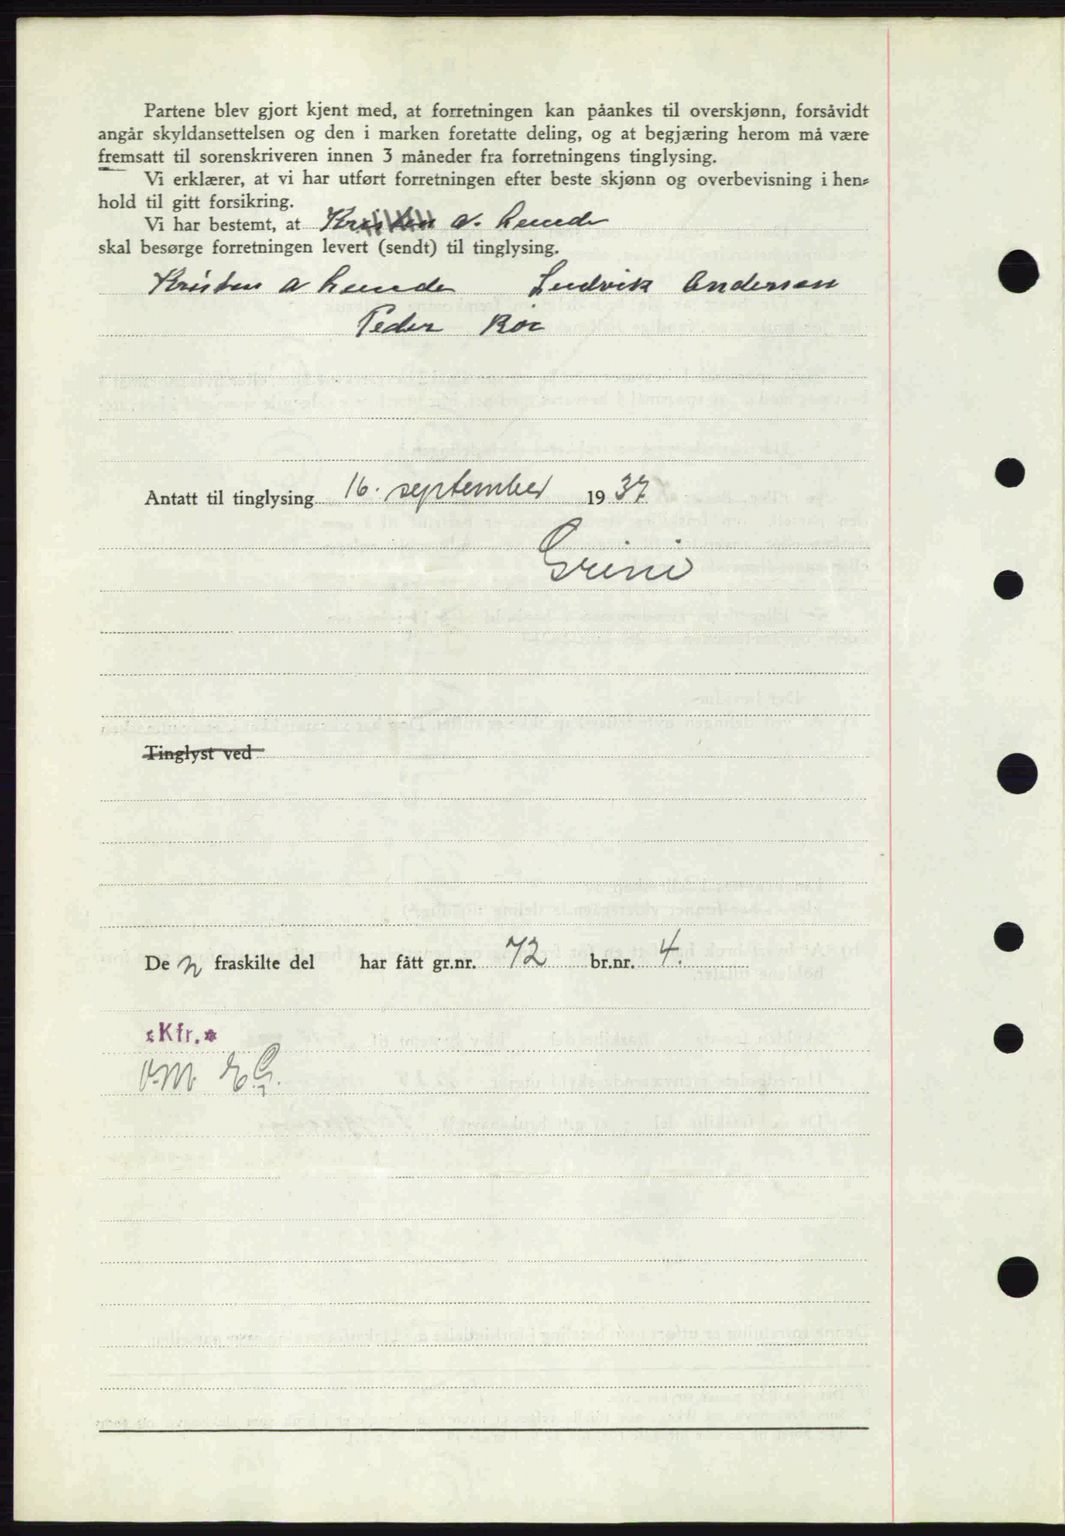 Partene blev gjort kjent med, at forretningen kan påankes til overskjønn, forsåvidt
angår skyldansettelsen og den i marken foretatte deling, og at begjæring herom må være
fremsatt til sorenskriveren innen 3 måneder fra forretningens tinglysing.
Vi erklærer, at vi har utført forretningen efter beste skjønn og overbevisning i hen=
hold til gitt forsikring.
Vi har bestemt, at Kristen A. Lunde
skal besørge forretningen levert (sendt) til tinglysing.
Kristen A Lunde Ludvik Andersen
Peder Bøe
Antatt til tinglysing 16. september 1937
Grini
Tinglyst ved
De n fraskilte del har fått gr.nr. 72 br.nr. 4.
*Kfr.*
E.G.